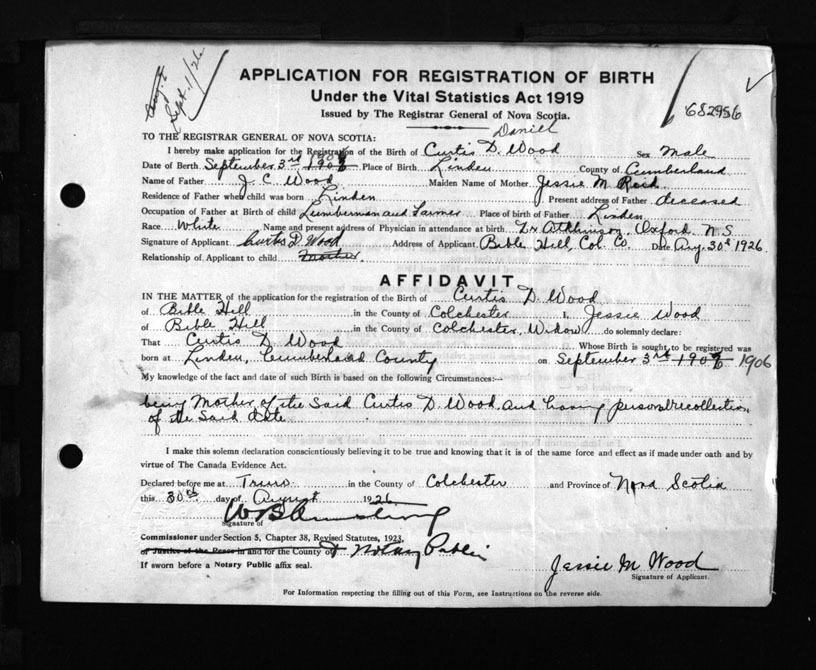 Sept. 1/26
APPLICATION FOR REGISTRATION OF BIRTH
Under the Vital Statistics Act 1919
Issued by The Registrar General of Nova Scotia.
682956
TO THE REGISTRAR GENERAL OF NOVA SCOTIA:
Daniel
I hereby make application for the Registration of the Birth of Curtis D. Wood Sex Male
Date of Birth September 3rd Place of Birth Linden County of Cumberland
Name of Father J. C. Wood Maiden Name of Mother Jessie M. Reid
Residence of Father when child was born Linden Present address of Father deceased
Occupation of Father at Birth of child Lumberman and Farmer Place of birth of Father Linden
Race White Name and present address of Physician in attendance at birth Dr Atkinson, Oxford N.S
Signature of Applicant Curtis D. Wood Address of Applicant Bible Hill, Col. Co. Date Aug. 30th 1926
Relationship of Applicant to child Mother
AFFIDAVIT
IN THE MATTER of the application for the registration of the Birth of Curtis D. Wood
of Bible Hill in the County of Colchester I, Jessie Wood
of Bible Hill in the County of Colchester, Widow do solemnly declare:
That Curtis D. Wood Whose Birth is sought to be registered was
born at Linden, Cumberland County on September 3rd 1906
My knowledge of the fact and date of such Birth is based on the following Circumstances:—
being Mother of the said Curtis D. Wood and having personal recollection
of the said date
I make this solemn declaration conscientiously believing it to be true and knowing that it is of the same force and effect as if made under oath and by
virtue of The Canada Evidence Act.
Declared before me at Truro in the County of Colchester and Province of Nova Scotia
this 30th day of August 1926
Signature of
Commissioner under Section 5, Chapter 38, Revised Statutes, 1923,
or Justice of the Peace in and for the County of Notary Public
If sworn before a Notary Public affix seal.
Jessie M Wood
Signature of Applicant.
For Information respecting the filling out of this Form, see Instructions on the reverse side.